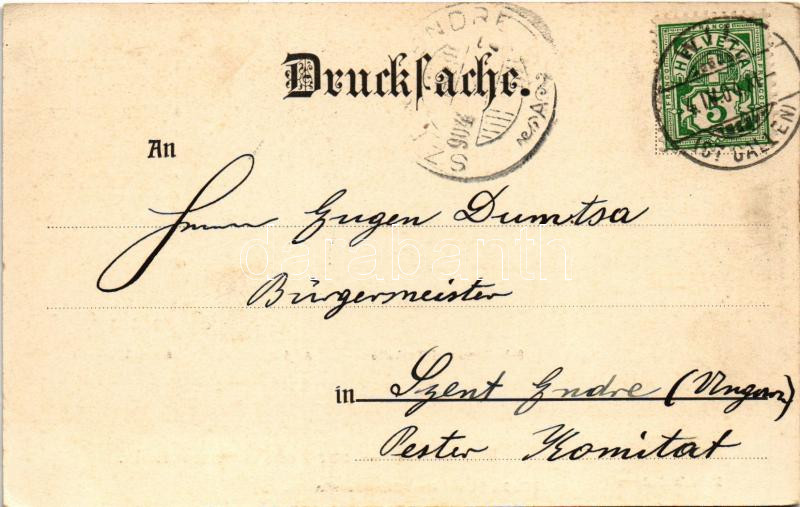 Drucksache.
An
Herrn Eugen Dumtsa
Bürgermeister
in Szent Endre (Ungarn)
Pester Komitat
FRANCO
HELVETIA
5
(ST GALLEN)
darabanth